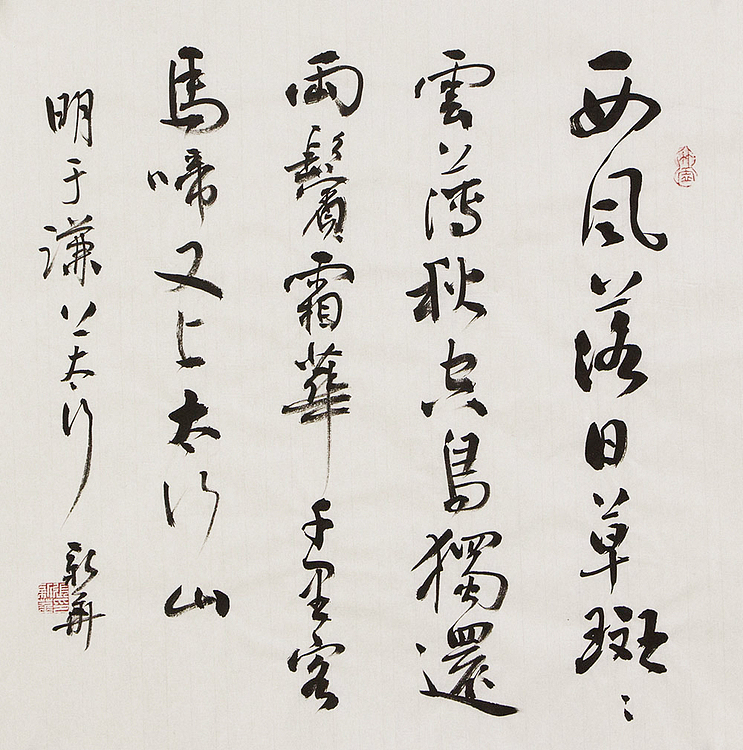 西風落日草斑〻
雲薄秋空鳥獨還
兩鬢霜華千里客
馬啼又上太行山
明于謙上太行 新華